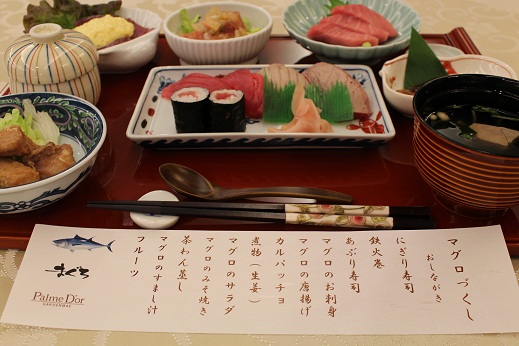 マグロづくし
おしながき
にぎり寿司
鉄火巻
あぶり寿司
マグロのお刺身
マグロの唐揚げ
カルパッチョ
煮物(生姜)
マグロのサラダ
マグロのみそ焼き
茶わん蒸し
マグロのすまし汁
フルーツ
まぐろ
Palme D'or